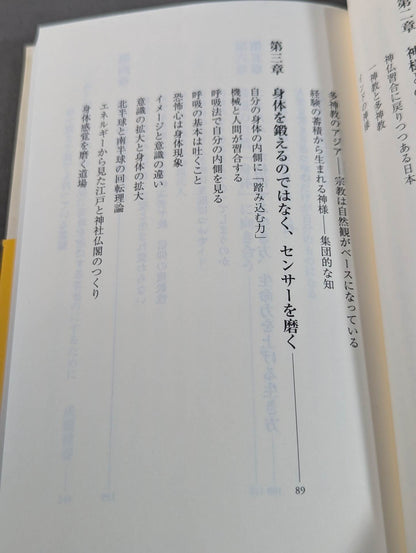 第二章
神仏習合に戻りつつある日本
一神教と多神教
多神教のアジア――宗教は自然観がベースになっている
経験の蓄積から生まれる神様――集団的な知
第三章 身体を鍛えるのではなく、センサーを磨く――89
自分の身体の内側に「踏み込む力」
機械と人間が習合する
呼吸法で自分の内側を見る
呼吸の基本は吐くこと
恐怖心は身体現象
イメージと意識の違い
意識の拡大と身体の拡大
北半球と南半球の回転理論
エネルギーから見た江戸と神社仏閣のつくり
身体感覚を磨く道場